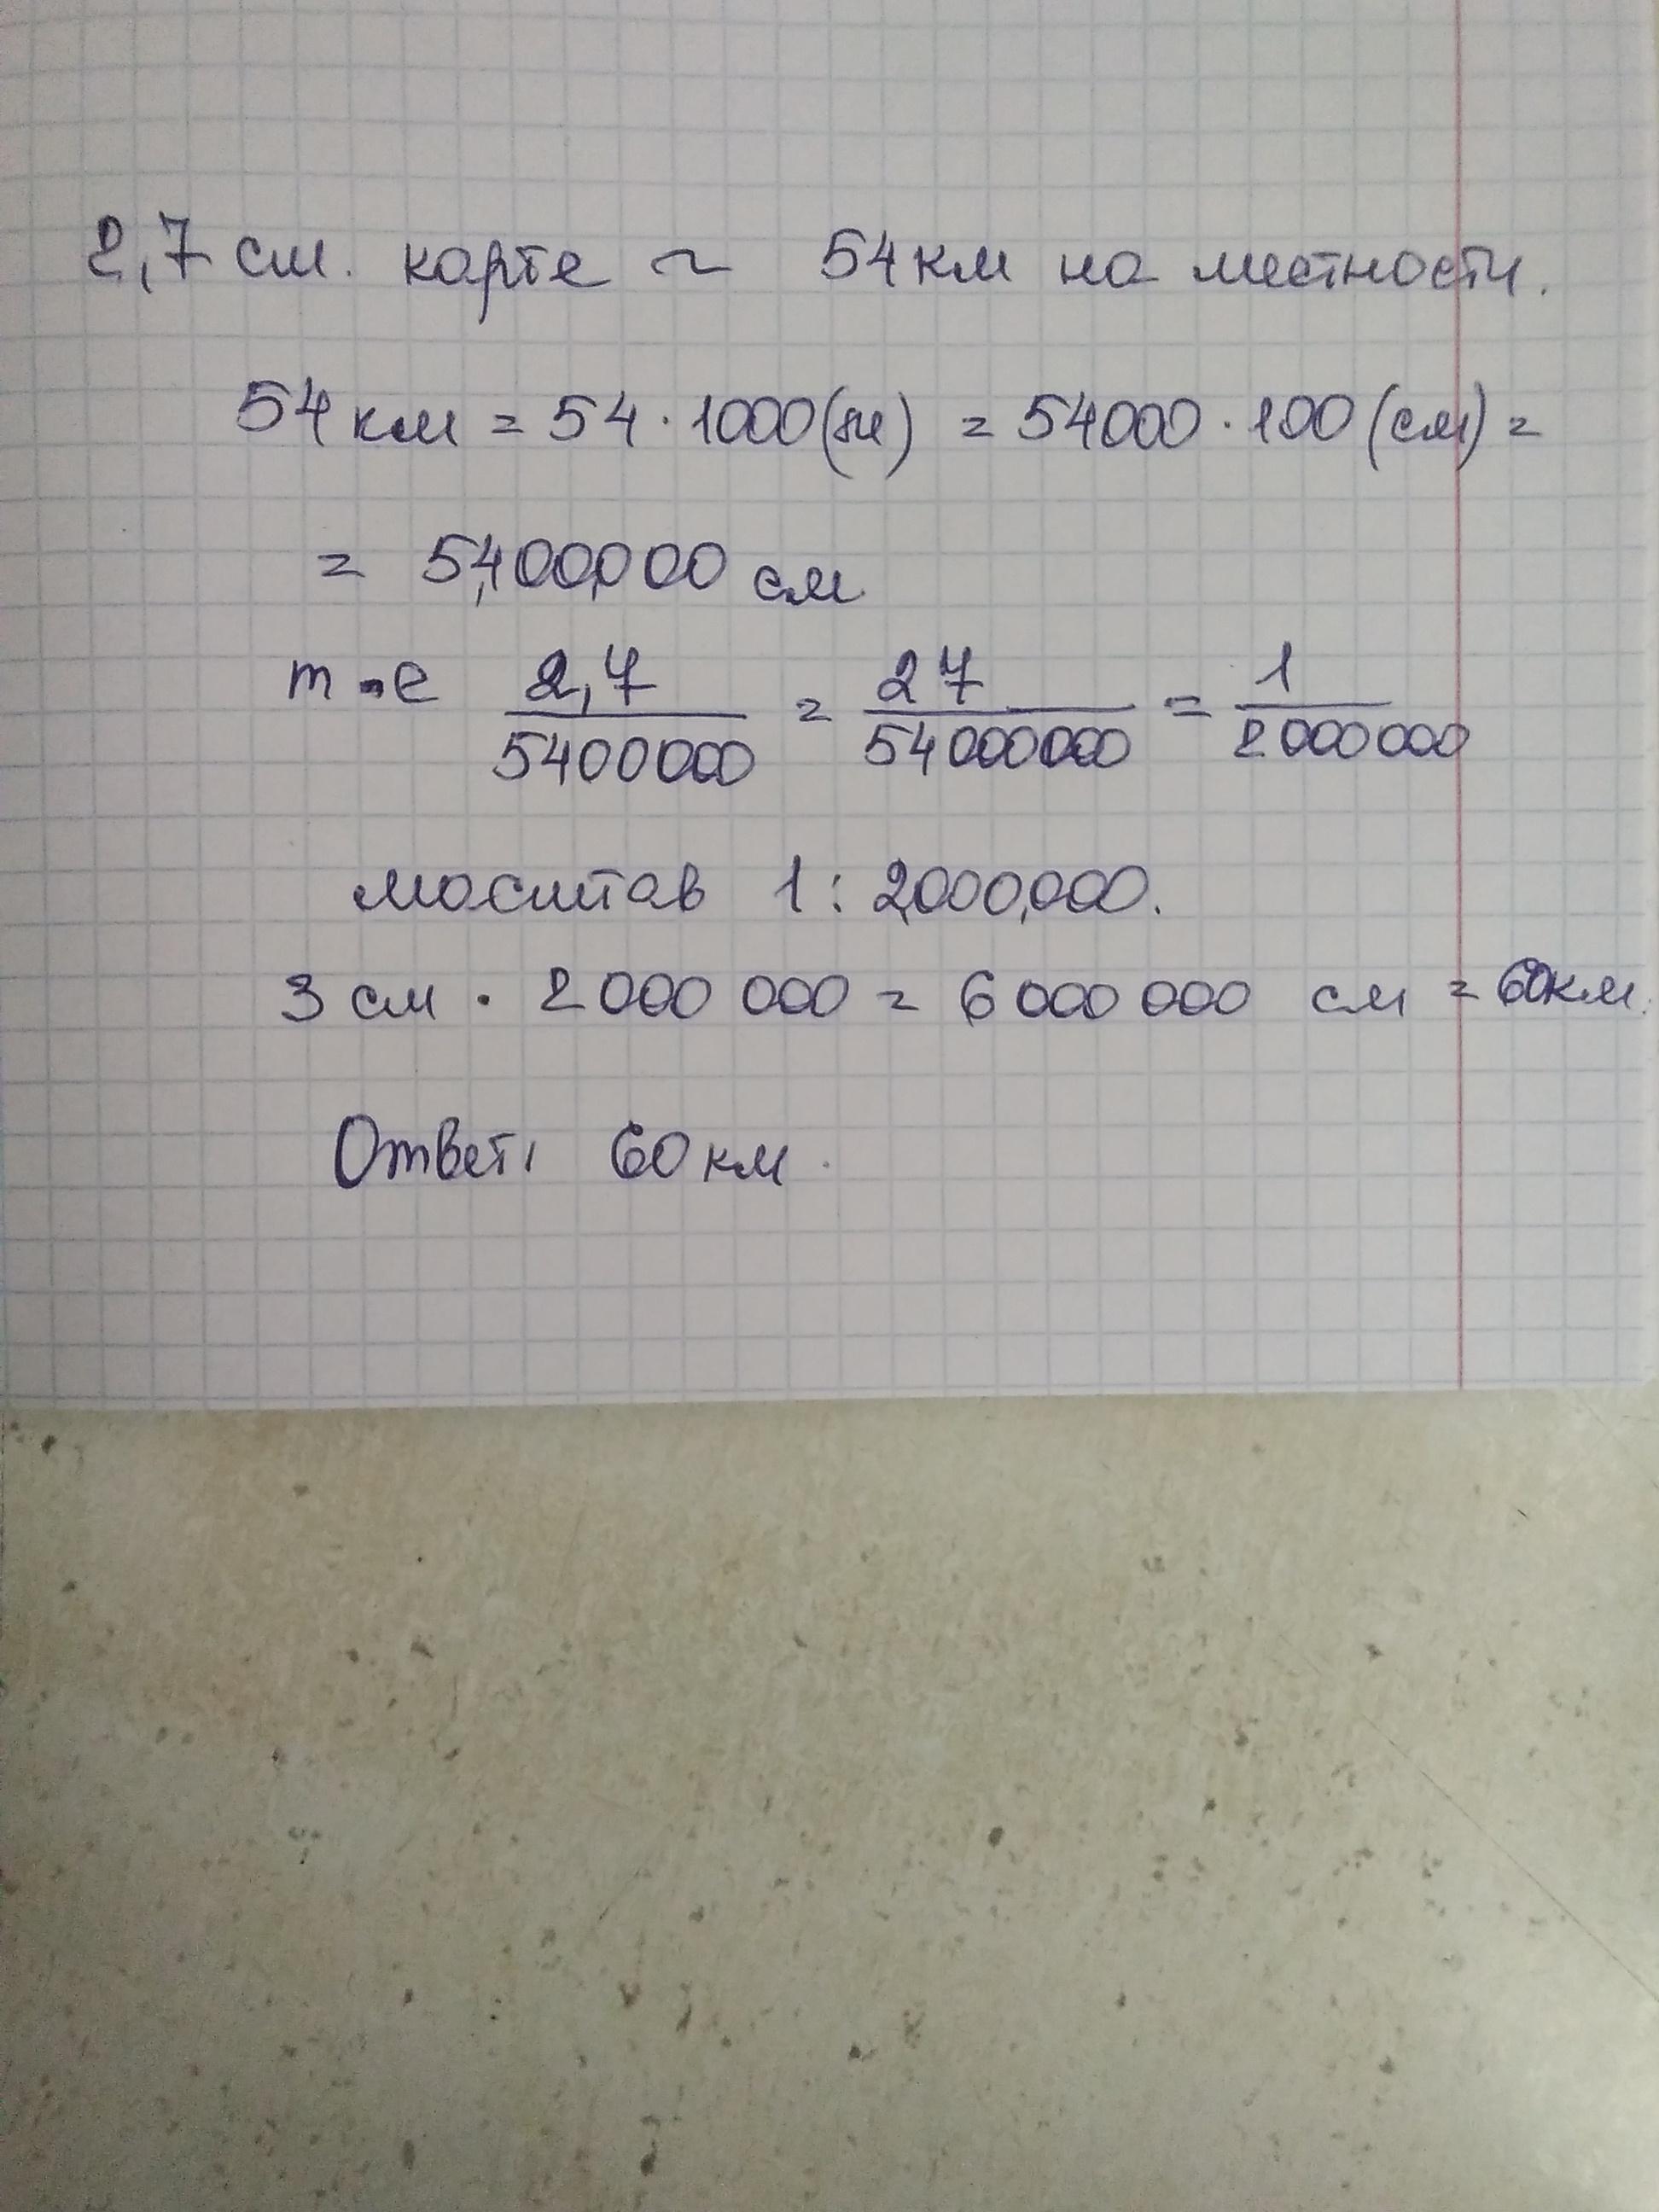 2,7 см. карте ~ 54 км на местности.
54 км = 54 · 1000 (м) = 54000 · 100 (см) =
= 5,400,000 см
т.е 2,7/5400000 = 27/54000000 = 1/2000000
масштав 1 : 2,000,000.
3 см · 2 000 000 = 6 000 000 см = 60км.
Ответ: 60 км.